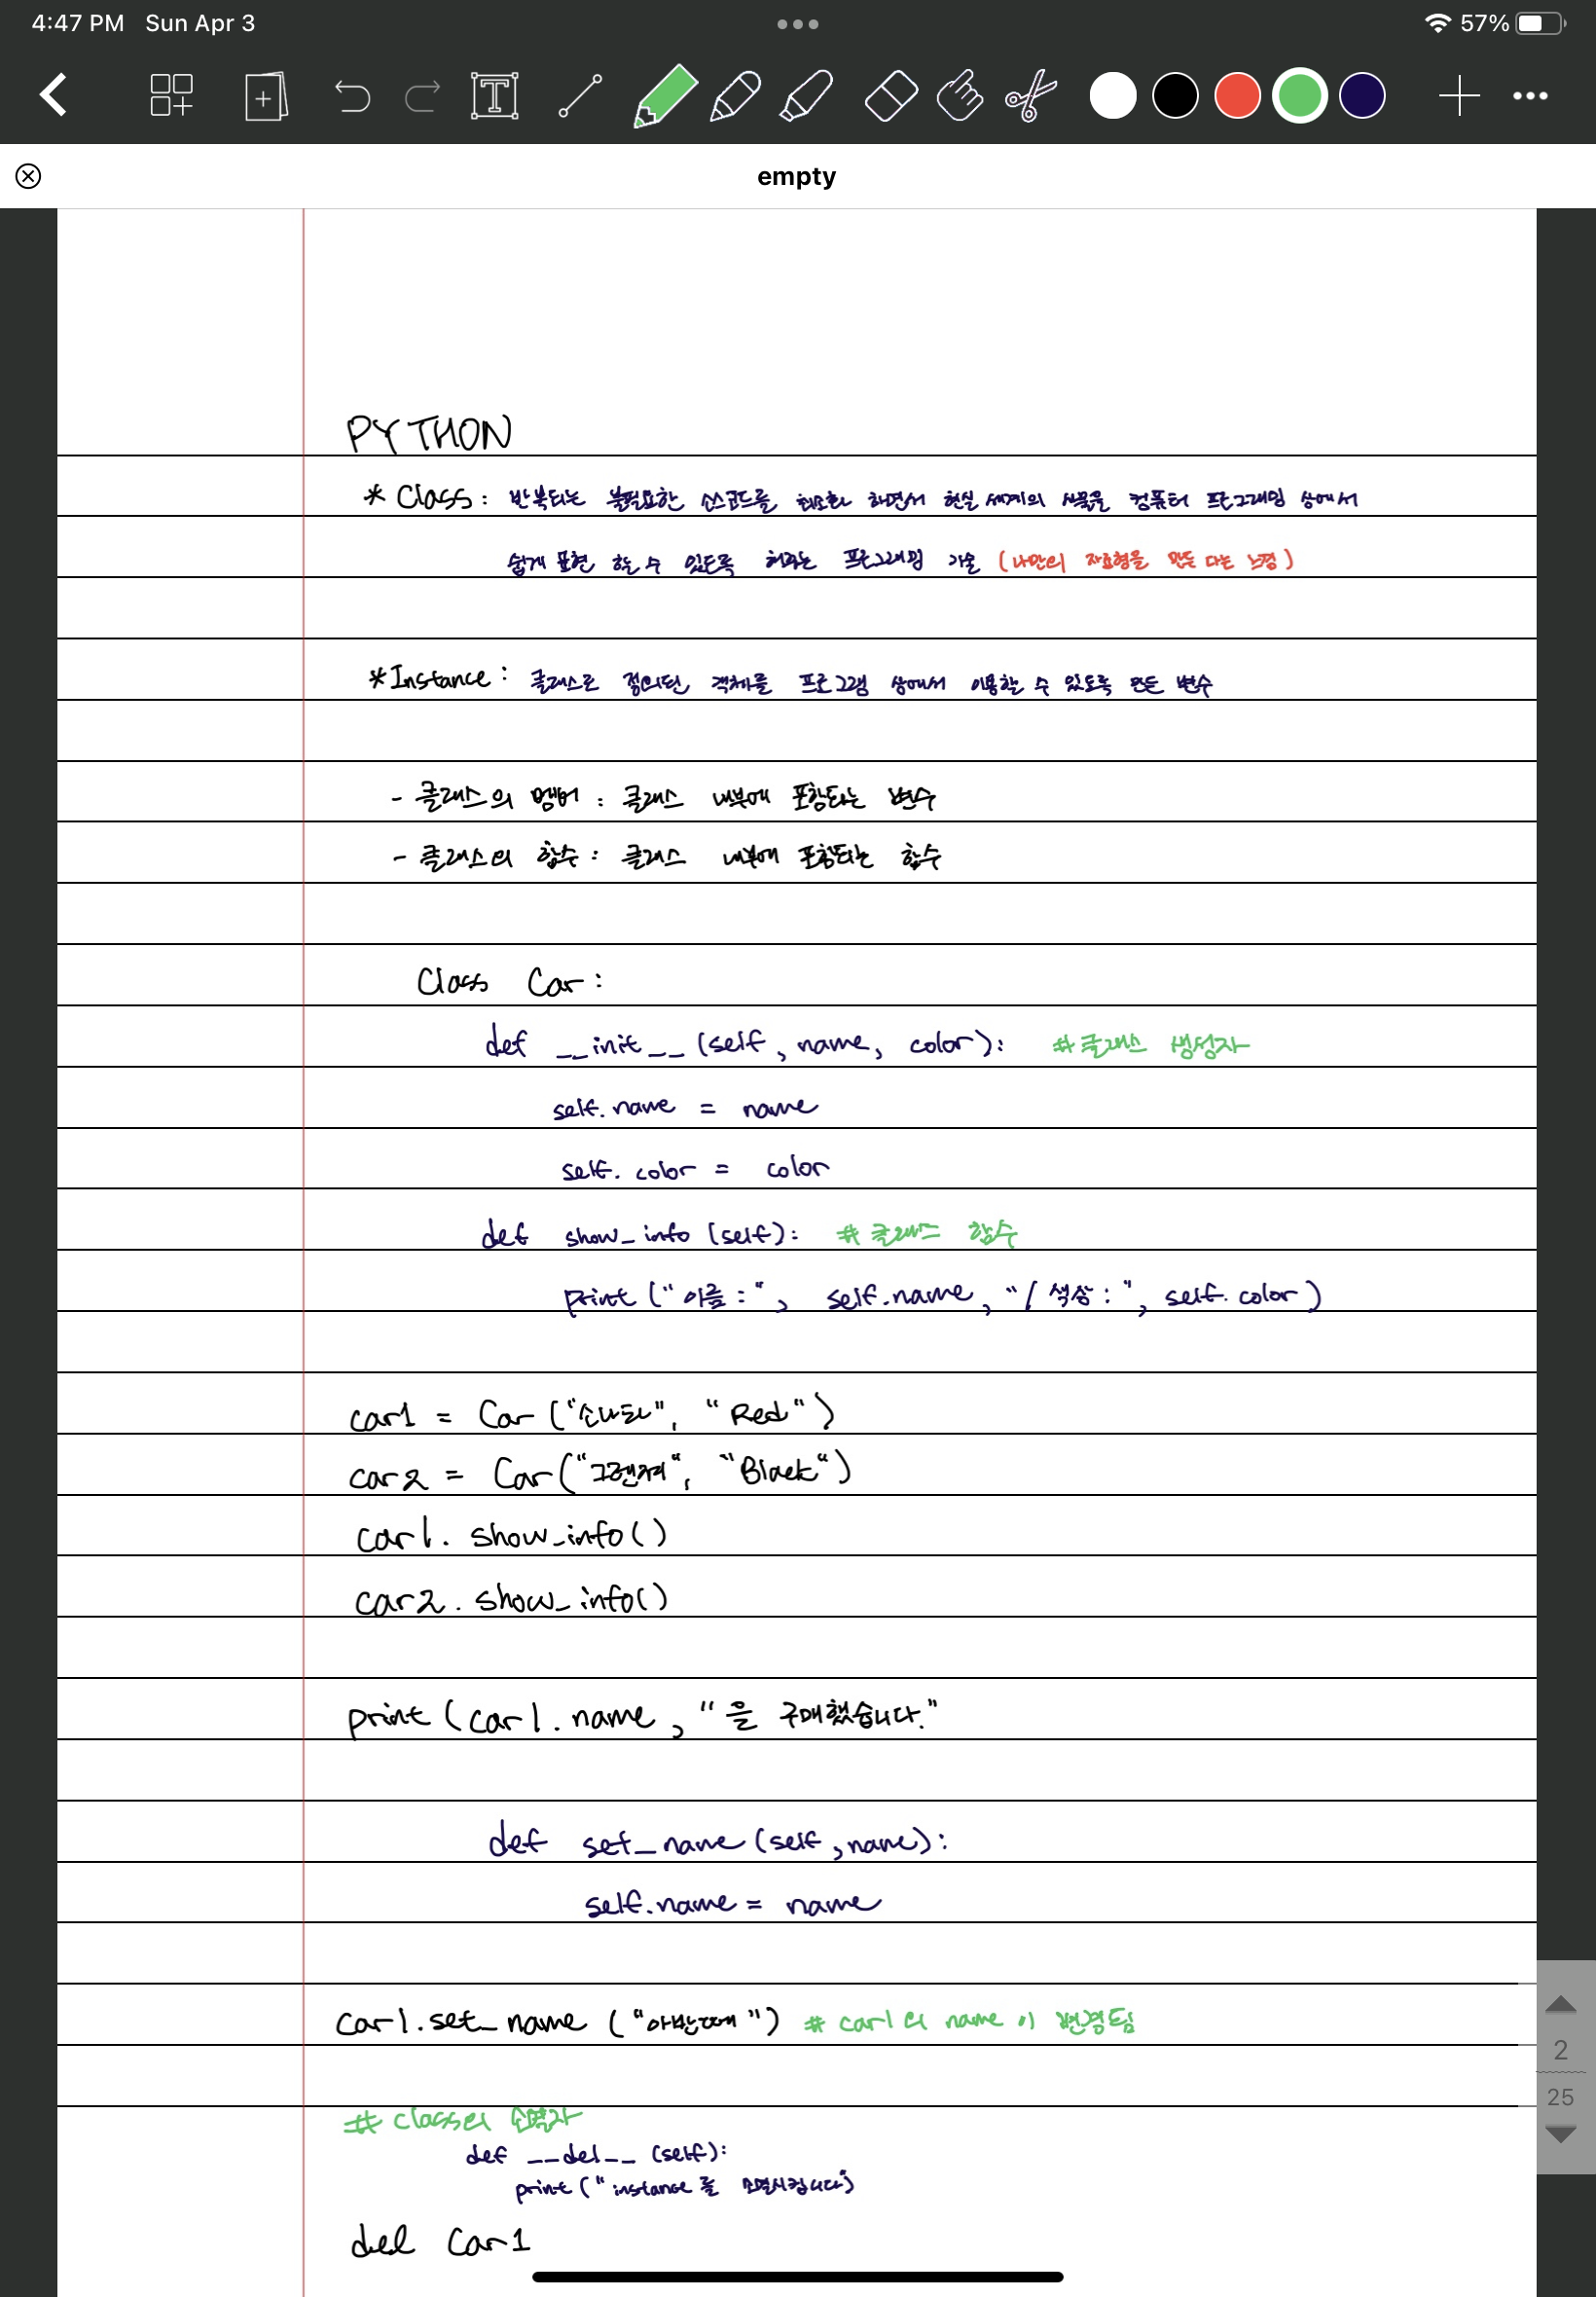 4:47 PM Sun Apr 3 57%
empty
PYTHON
* Class : 반복되는 불필요한 소스코드를 최소화 하면서 현실 세계의 사물을 컴퓨터 프로그래밍 상에서
쉽게 표현 할 수 있도록 해주는 프로그래밍 기술 (나만의 자료형을 만든 다는 느낌)
*Instance : 클래스로 정의된 객체를 프로그램 상에서 이용할 수 있도록 만든 변수
- 클래스의 멤버 : 클래스 내부에 포함되는 변수
- 클래스의 함수 : 클래스 내부에 포함되는 함수
Class Car :
def __init__ (self, name, color): #클래스 생성자
self.name = name
self.color = color
def show_info (self): # 클래스 함수
print ("이름 :", self.name, "/ 색상 :", self.color)
car1 = Car ("소나타", "Red")
car2 = Car("그랜저", "Black")
car1. show_info()
car2. show_info()
print (car1.name, "을 구매했습니다."
def set_name (self, name):
self.name = name
car1.set_name ("아반떼") # car1의 name이 변경됨
# class의 소멸자
def __del__ (self):
print ("instance를 소멸시킵니다")
del car1
2
25